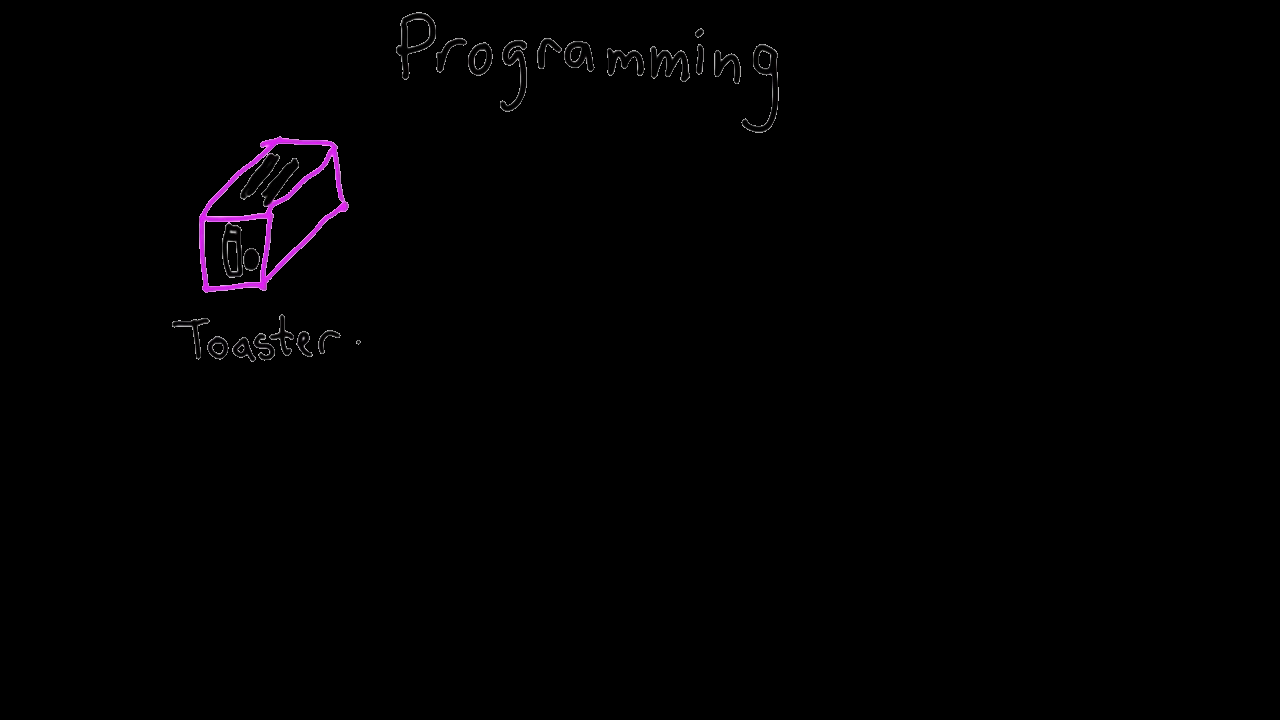 Programming
Toaster.